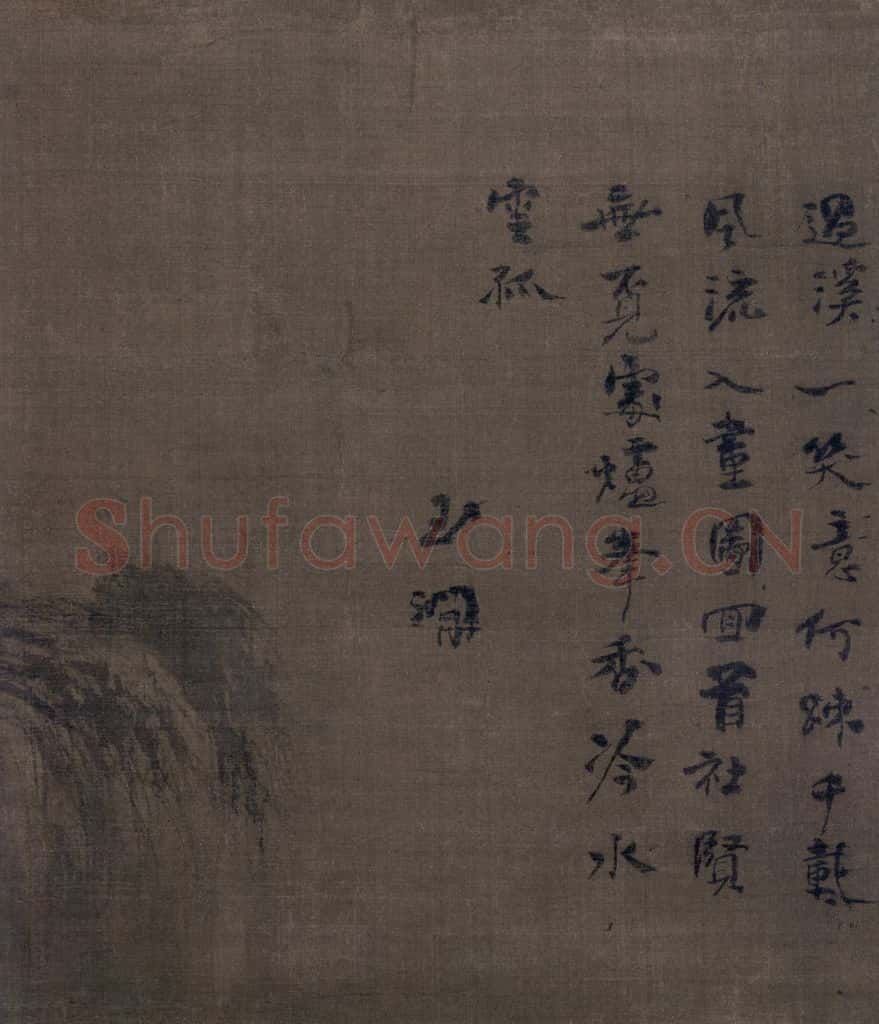 過溪一笑意何疎千載
風流入畫圖回首社賢
無覓處爐峯香冷水
雲孤
玉澗
Shufawang.CN